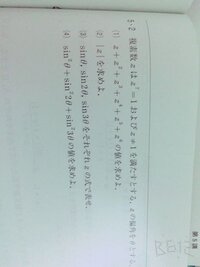 第5講
5・2 複素数 z は z⁷=1 および z≠1 を満たすとする。z の偏角を θ とする。
(1) z+z²+z³+z⁴+z⁵+z⁶ の値を求めよ。
(2) |z| を求めよ。
(3) sinθ, sin2θ, sin3θ をそれぞれ z の式で表せ。
(4) sin²θ+sin²2θ+sin²3θ の値を求めよ。